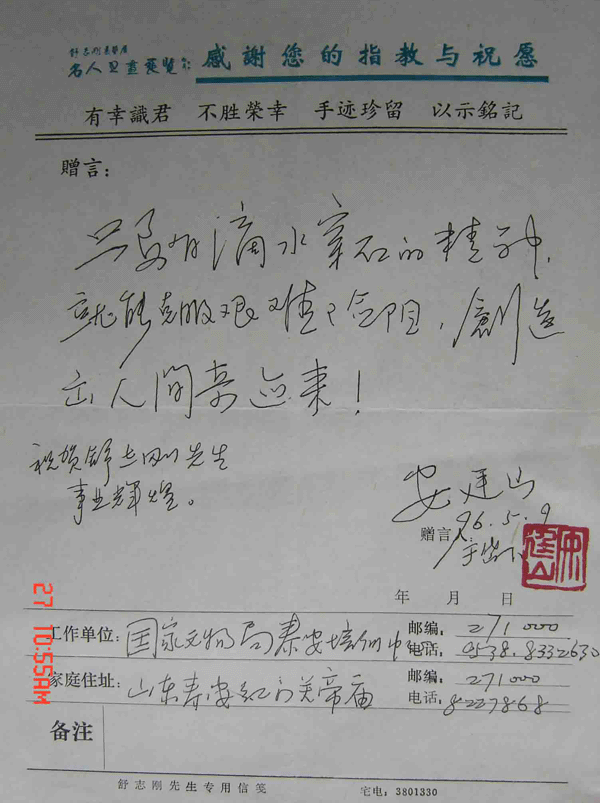 舒志刚
名人 展览 感謝您的指教与祝愿
有幸識君 不胜榮幸 手迹珍留 以示銘記
赠言：
只要有滴水穿石的精神，
就能克服艰难险阻，創造
出人間奇迹来！
祝贺舒志刚先生
事业輝煌。
安廷山
96.5.9
赠言人：于岱下
年 月 日
工作单位：国家文物局泰安培训中心 邮编：271000
电话：0538.8332630
家庭住址：山东泰安红门关帝庙 邮编：271000
电话：8227868
备注
舒志刚先生专用信笺 宅电：3801330
27 10:55AM